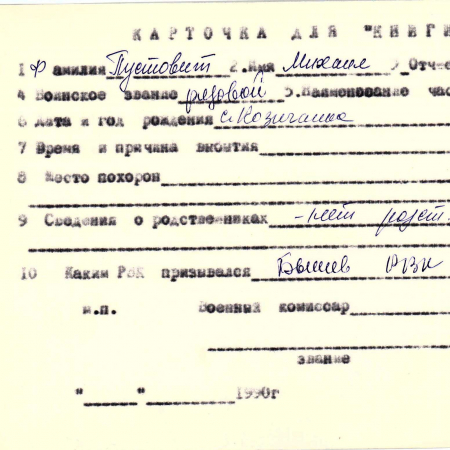 КАРТОЧКА ДЛЯ "КНИГИ
1 Фамилия Пустовит 2.Имя Михаил 3 Отчес
4 Воинское звание рядовой 5.Наименование час
6 Дата и год рождения
7 Время и причина выбытия
8 Место похорон
9 Сведения о родственниках - нет родст.
10 Каким РВК призывался РВК
м.п. Военный комиссар
звание
"____"________1990г